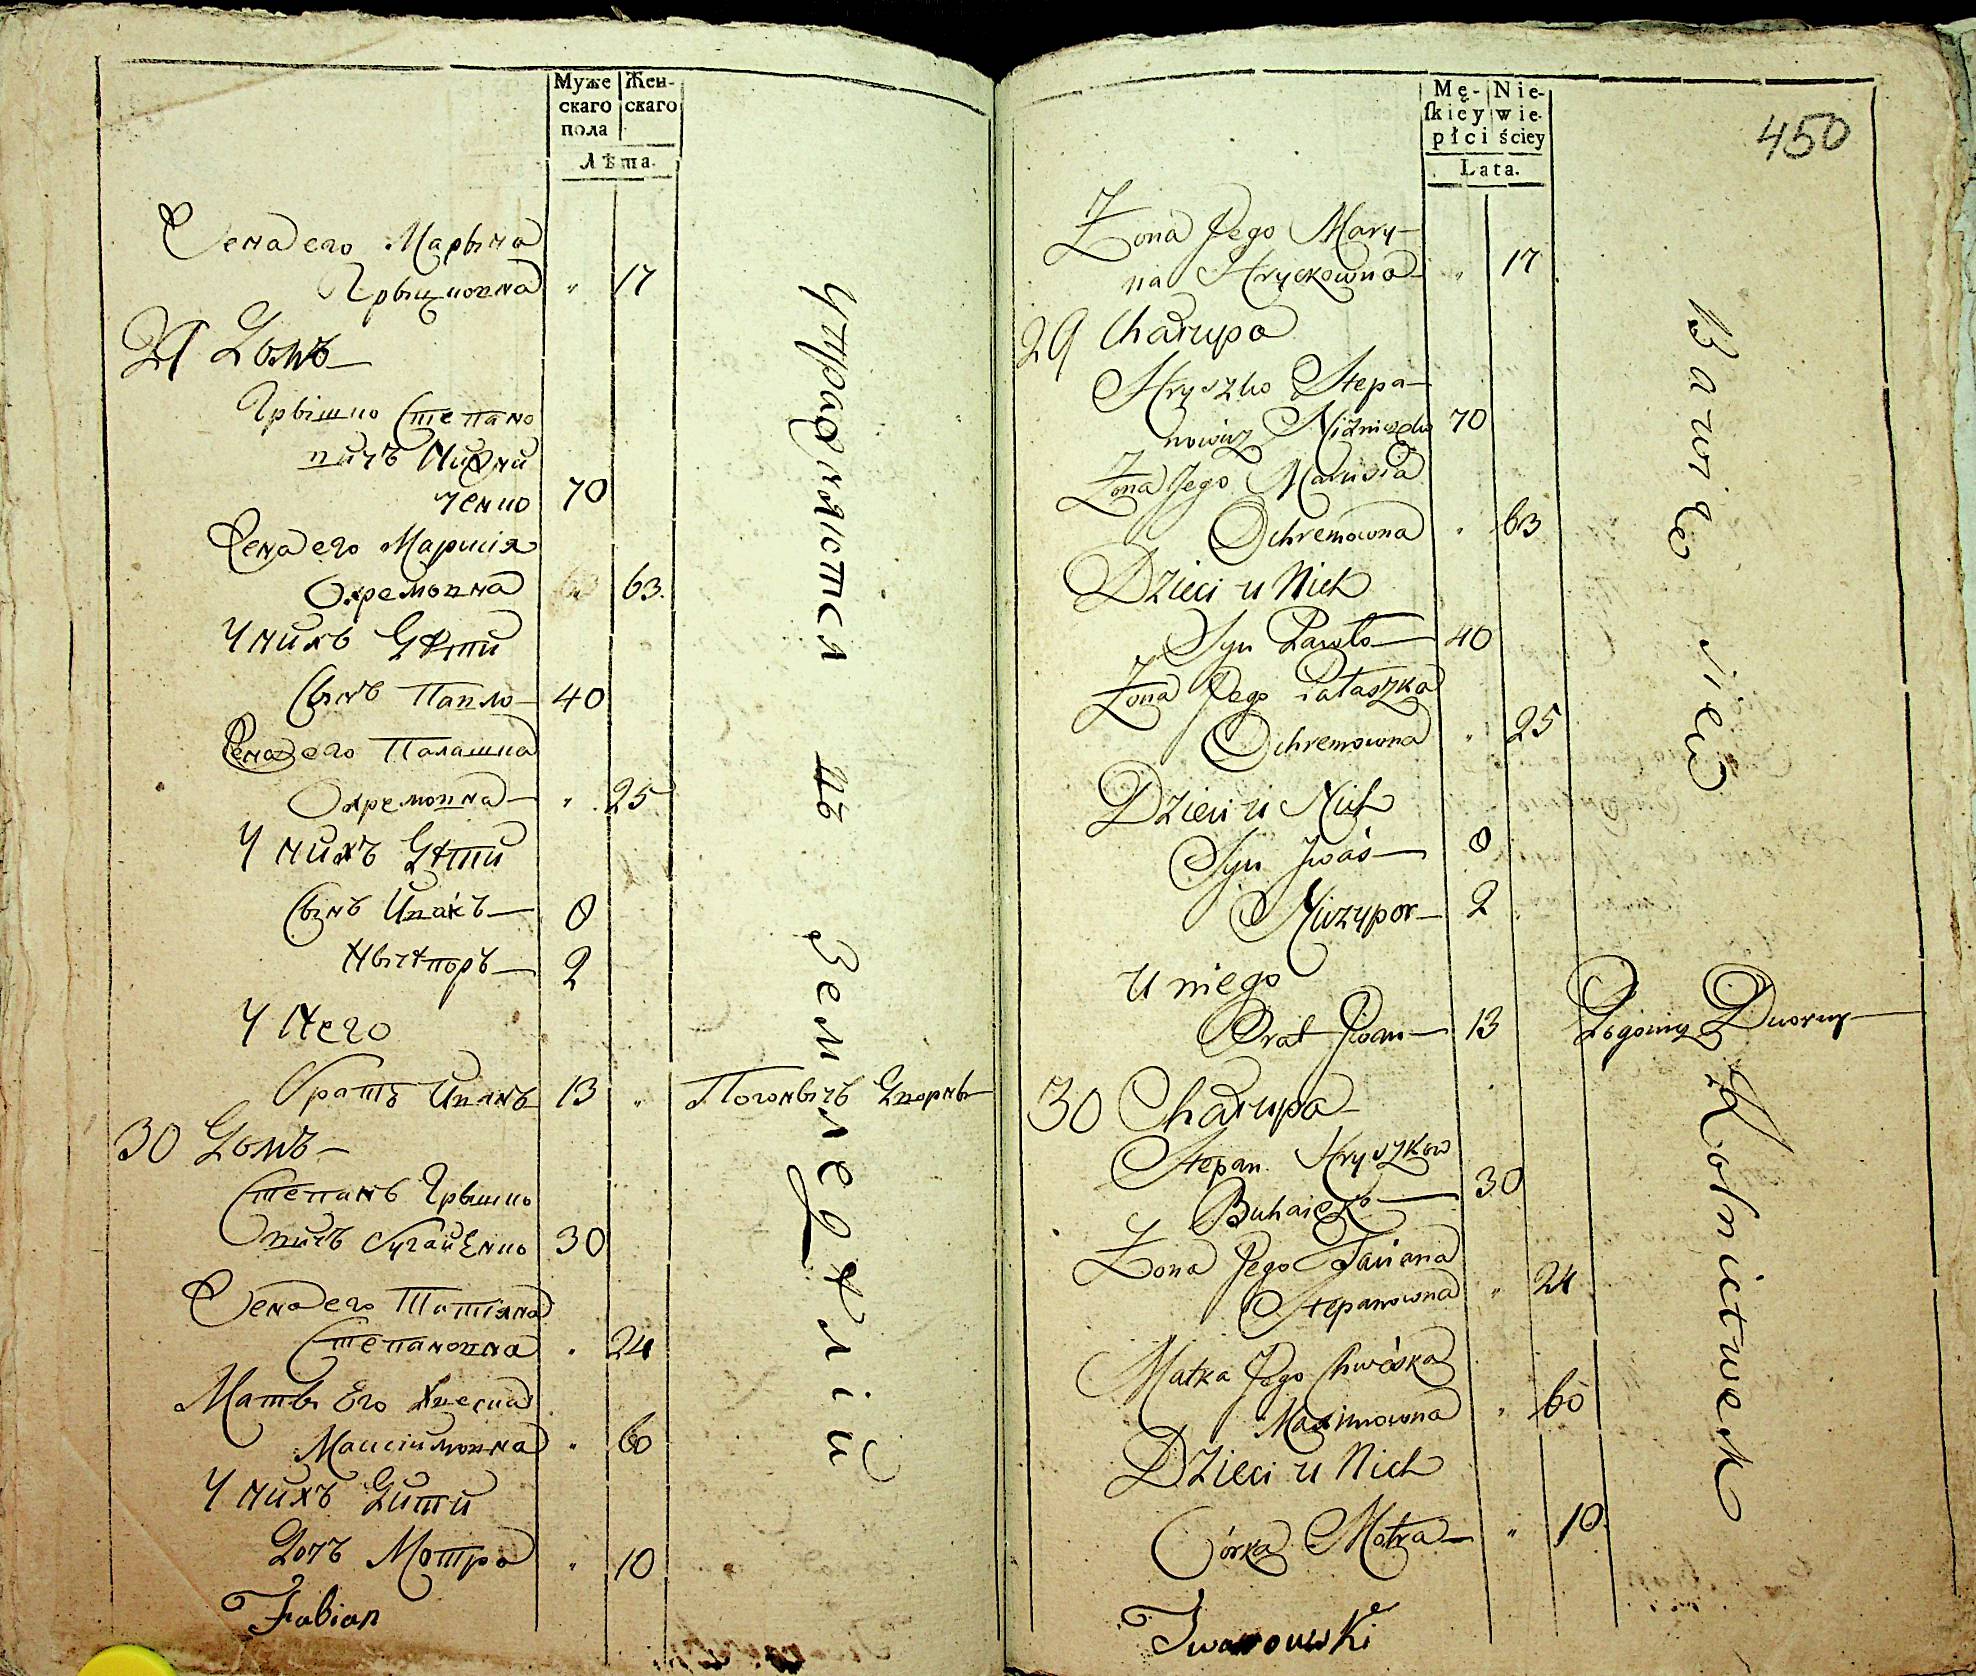 Муже
скаго
пола
Жен-
скаго
Лѣта.
Жена его Марына
Грыцковна " 17
29 Домъ
Грышко Степано
вичъ Нижни
ченко 70
Жена его Марися
Охремовна 63.
У нихъ Дѣти
Сынъ Павло 40
Жена его Палашка
Охремовна " 25
У нихъ Дѣти
Сынъ Ивасъ 8
Нычипоръ 2
У Него
Братъ Иванъ 13 " Погонычъ Дворны
30 Домъ
Степанъ Грышко
вичъ Бугаценко 30
Жена его Татіяна
Степановна " 24
Мать Его Хвеска
Максимовна " 60
У нихъ Дити
Дочъ Мотра " 10
Fabian
Упражняются въ Земледѣлій
Mę-
skiey
płci
Nie-
wie-
ściey
Lata.
450
Zona Jego Mary-
na Hryckowna " 17
29 Chałupa
Hryszko Stepa-
nowicz 70
Zona Jego Marusia
Ochremowna " 63
Dzieci u Nich
Syn Pawło 40
Zona Jego Pałaszka
Ochremowna " 25
Dzieci u Nich
Syn Jwaś 8
Niczypor 2
U niego
Brat Jwan 13 Pogonicz Dworny
30 Chałupa
Stepan Hryszkow
30
Zona Jego Taciana
Stepanowna " 24
Matka Jego Chwéska
Maximowna " 60
Dzieci u Nich
Córka Motra " 10
Jwanowski
Bawią się Rolnictwem